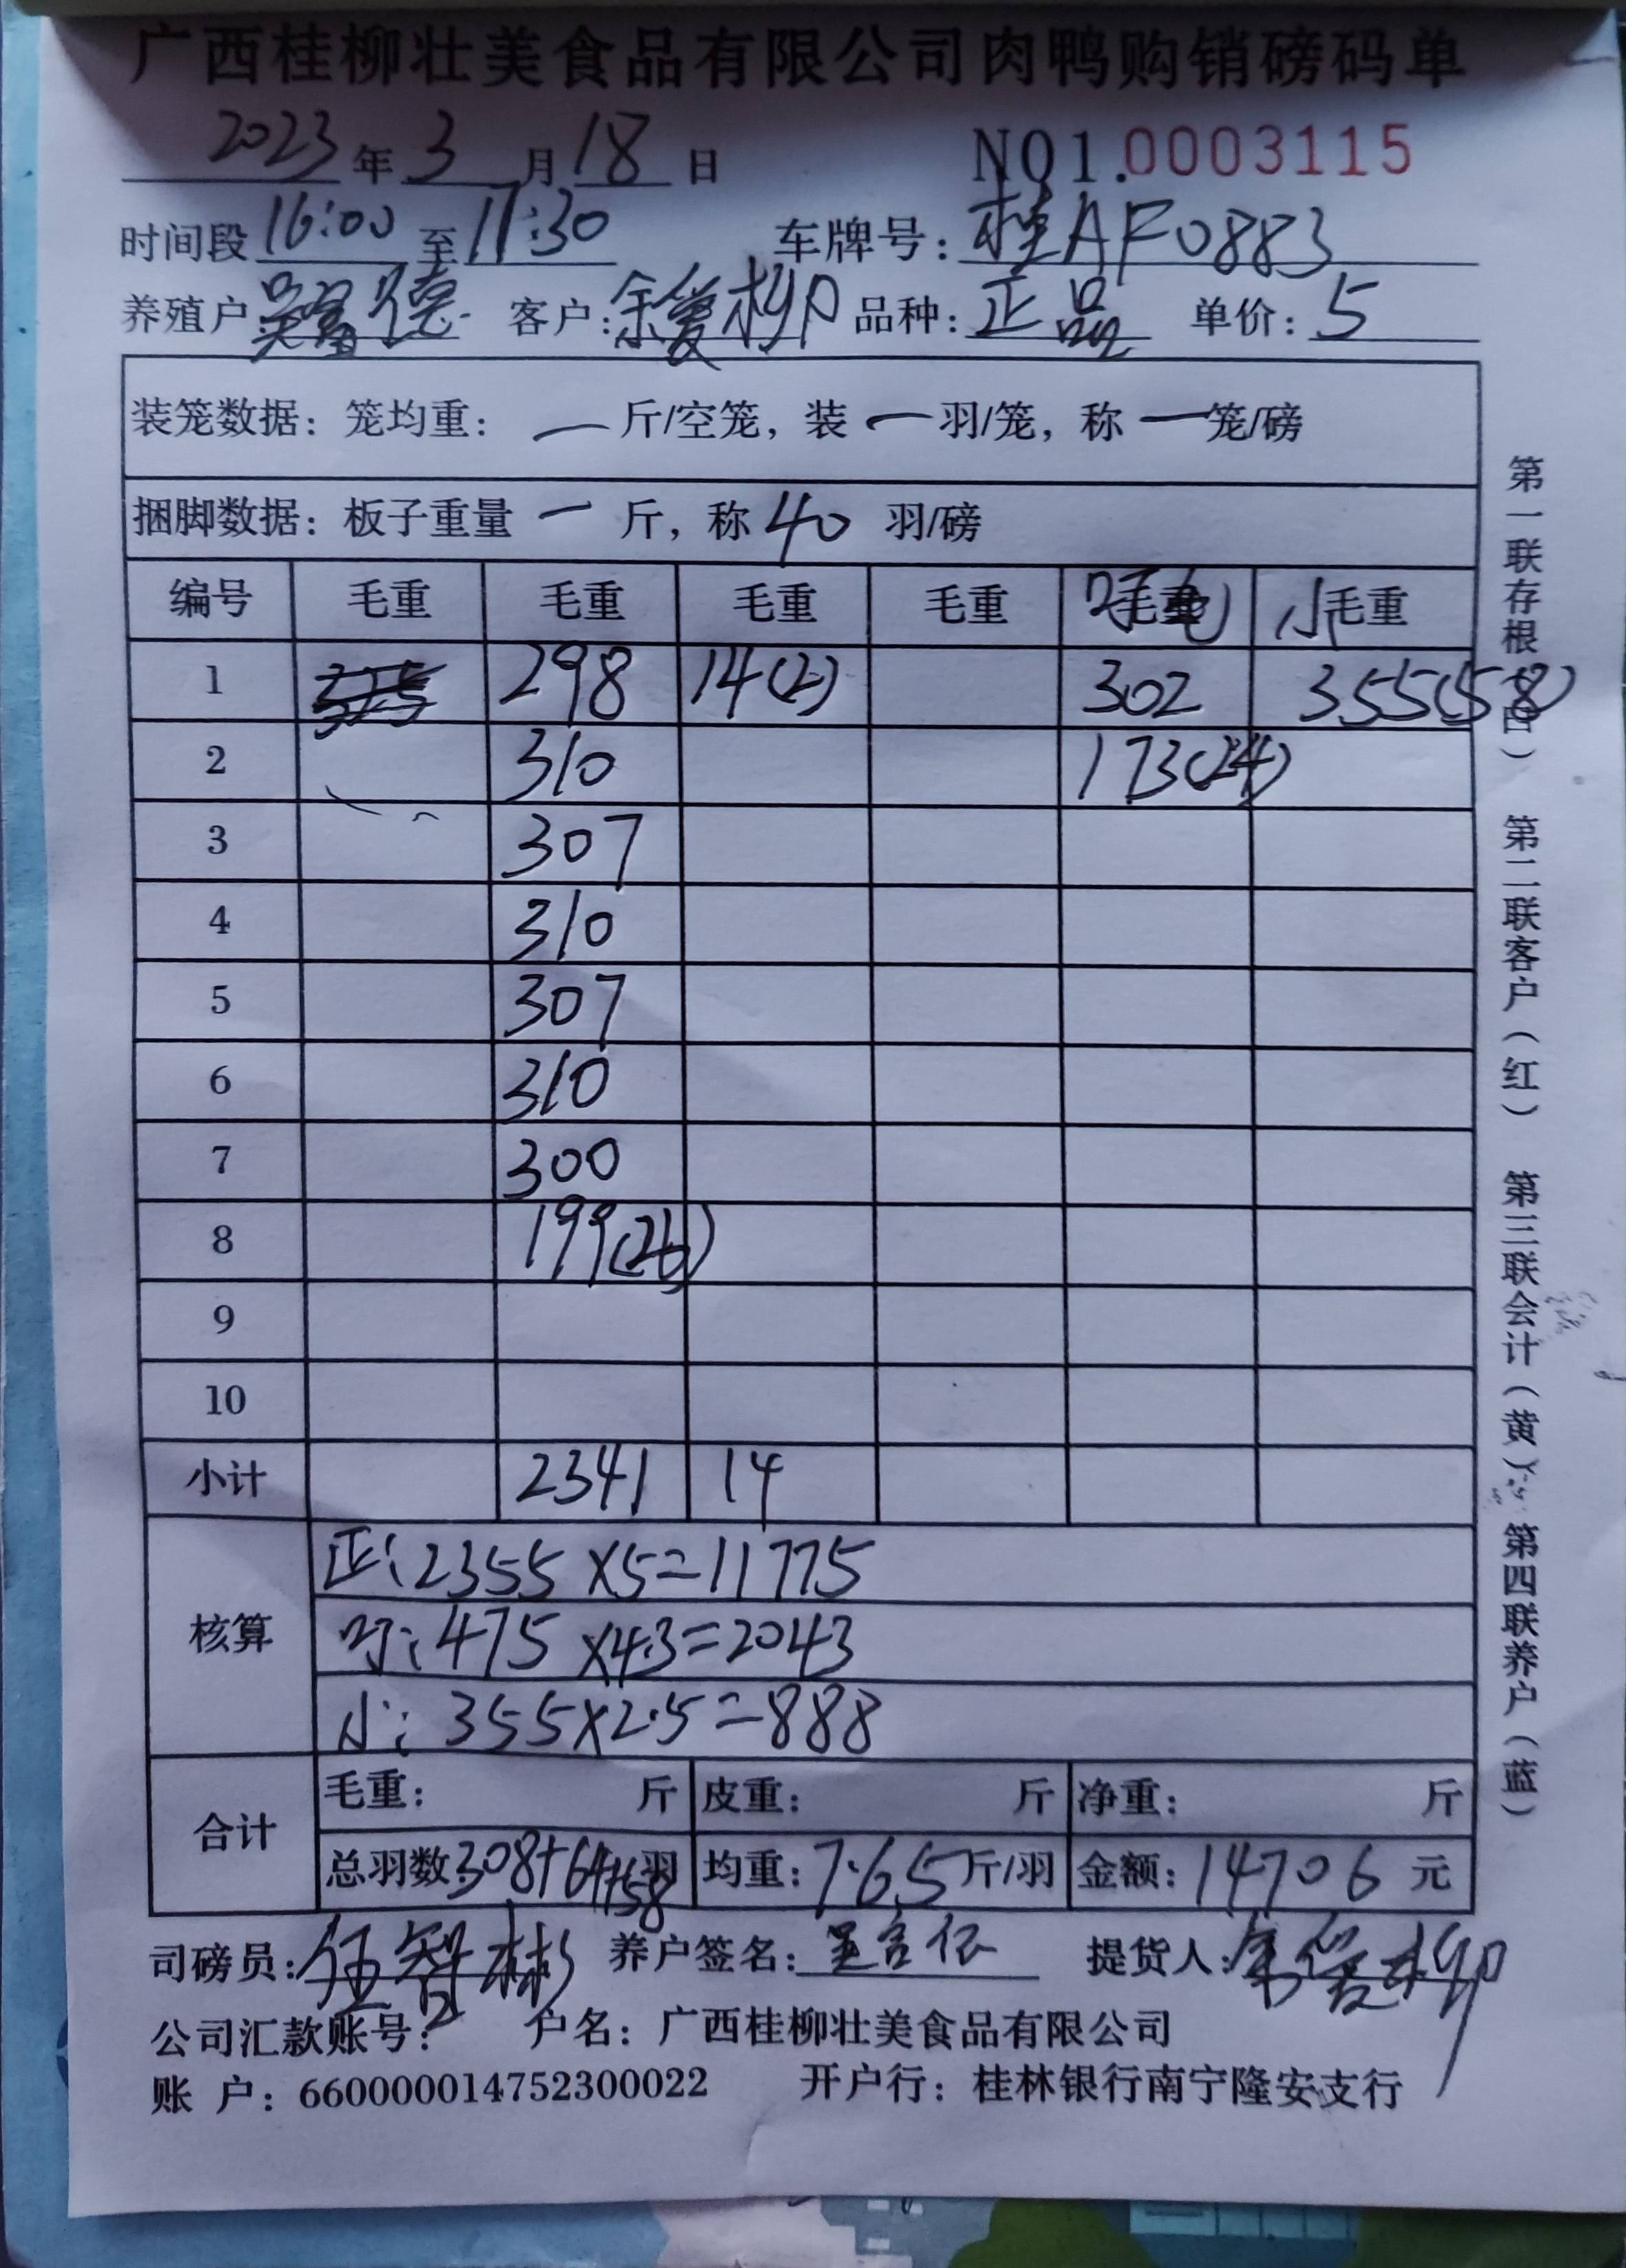 广西桂柳壮美食品有限公司肉鸭购销磅码单
2023年3月18日 NO1.0003115
时间段16:00至17:30 车牌号:桂AF0883
养殖户 德 客户:余爱柳 品种:正品 单价:5
装笼数据:笼均重:一斤/空笼,装一羽/笼,称一笼/磅
捆脚数据:板子重量一斤,称40羽/磅
编号 毛重 毛重 毛重 毛重 毛重 小毛重
1 298 14(2) 302 355(58)
2 310 173(24)
3 307
4 310
5 307
6 310
7 300
8 199(26)
9
10
小计 2341 14
核算
正:2355×5=11775
叮:475×4.3=2043
小:355×2.5=888
合计
毛重: 斤 皮重: 斤 净重: 斤
总羽数308+64+58羽 均重:7.65斤/羽 金额:14706元
司磅员:伍智彬 养户签名: 提货人:余爱柳
公司汇款账号: 户名:广西桂柳壮美食品有限公司
账 户:660000014752300022 开户行:桂林银行南宁隆安支行
第一联存根(白) 第二联客户(红) 第三联会计(黄) 第四联养户(蓝)